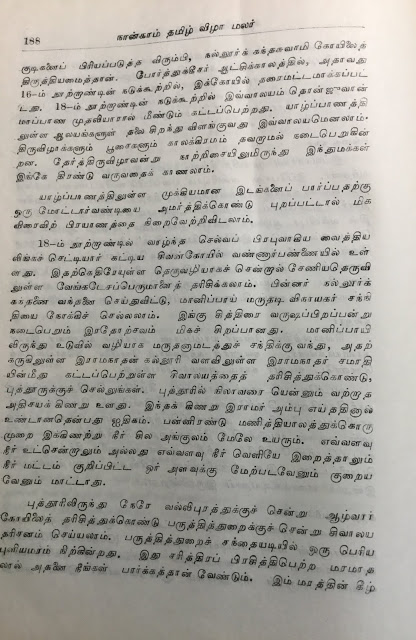 188
நான்காம் தமிழ் விழா மலர்
குடிகளைப் பிரியப்படுத்த விரும்பி, நல்லூர்க் கந்தசுவாமி கோயிலைத்
திருத்தியமைத்தான். போர்த்துக்கீசர் ஆட்சிக்காலத்தில், அதாவது
16-ம் நூற்றாண்டின் நடுக்கூற்றில், இக்கோயில் தரைமட்டமாக்கப்பட்
டது. 18-ம் நூற்றாண்டின் நடுக்கூற்றில் இவ்வாலயம் தொன் ஜுவான்
மாப்பாண முதலியாரால் மீண்டும் கட்டப்பெற்றது. யாழ்ப்பாணத்தி
லுள்ள ஆலயங்களுள் தலை சிறந்து விளங்குவது இவ்வாலயமெனலாம்.
திருவிழாக்களும் பூசைகளும் காலக்கிரமம் தவறாமல் நடைபெறுகின்
றன. தேர்த்திருவிழாவன்று நாற்றிசையிலுமிருந்து இந்துமக்கள்
இங்கே திரண்டு வருவதைக் காணலாம்.
யாழ்ப்பாணத்திலுள்ள முக்கியமான இடங்களைப் பார்ப்பதற்கு
ஒரு மோட்டார்வண்டியை அமர்த்திக்கொண்டு புறப்பட்டால் மிக
விரைவிற் பிரயாணத்தை நிறைவேற்றிவிடலாம்.
18-ம் நூற்றாண்டில் வாழ்ந்த செல்வப் பிரபுவாகிய வைத்திய
லிங்கச் செட்டியார் கட்டிய சிவன்கோயில் வண்ணார்பண்ணையில் உள்
ளது. இதற்கெதிரேயுள்ள தெருவழியாகச் சென்றால் சேணியதெருவி
லுள்ள வேங்கடேசப்பெருமானைத் தரிசிக்கலாம். பின்னர் நல்லூர்க்
கந்தனை வந்தனை செய்துவிட்டு, மானிப்பாய் மருதடி விநாயகர் சந்நி
தியை நோக்கிச் செல்லலாம். இங்கு சித்திரை வருஷப்பிறப்பன்று
நடைபெறும் இரதோற்சவம் மிகச் சிறப்பானது. மானிப்பாயி
லிருந்து உடுவில் வழியாக மருதனாமடத்துச் சந்திக்கு வந்து, அதற்
கருகிலுள்ள இராமநாதன் கல்லூரி வளவிலுள்ள இராமநாதர் சமாதி
யின்மீது கட்டப்பெற்றுள்ள சிவாலயத்தைத் தரிசித்துக்கொண்டு,
புத்தூருக்குச் செல்லுங்கள். புத்தூரில் நிலாவரை யென்னும் வற்றாத
அதிசயக் கிணறு உளது. இந்தக் கிணறு இராமர் அம்பு எய்ததினால்
உண்டானதென்பது ஐதிகம். பன்னிரண்டு மணித்தியாலத்துக்கொரு
முறை இக்கிணற்று நீர் சில அங்குலம் மேலே உயரும். எவ்வளவு
நீர் உட்சென்றாலும் அல்லது எவ்வளவு நீர் வெளியே இறைத்தாலும்
நீர் மட்டம் குறிப்பிட்ட ஓர் அளவுக்கு மேற்படவேனும் குறைய
வேனும் மாட்டாது.
புத்தூரிலிருந்து நேரே வல்லிபுரத்துக்குச் சென்று ஆழ்வார்
கோயிலைத் தரிசித்துக்கொண்டு பருத்தித்துறைக்குச் சென்று சிவாலய
தரிசனம் செய்யலாம். பருத்தித்துறைச் சந்தையடியில் ஒரு பெரிய
புளியமரம் நிற்கின்றது. இது சரித்திரப் பிரசித்திபெற்ற மரமாத
லால் அதனை நீங்கள் பார்க்கத்தான் வேண்டும். இம் மரத்தின் கீழ்